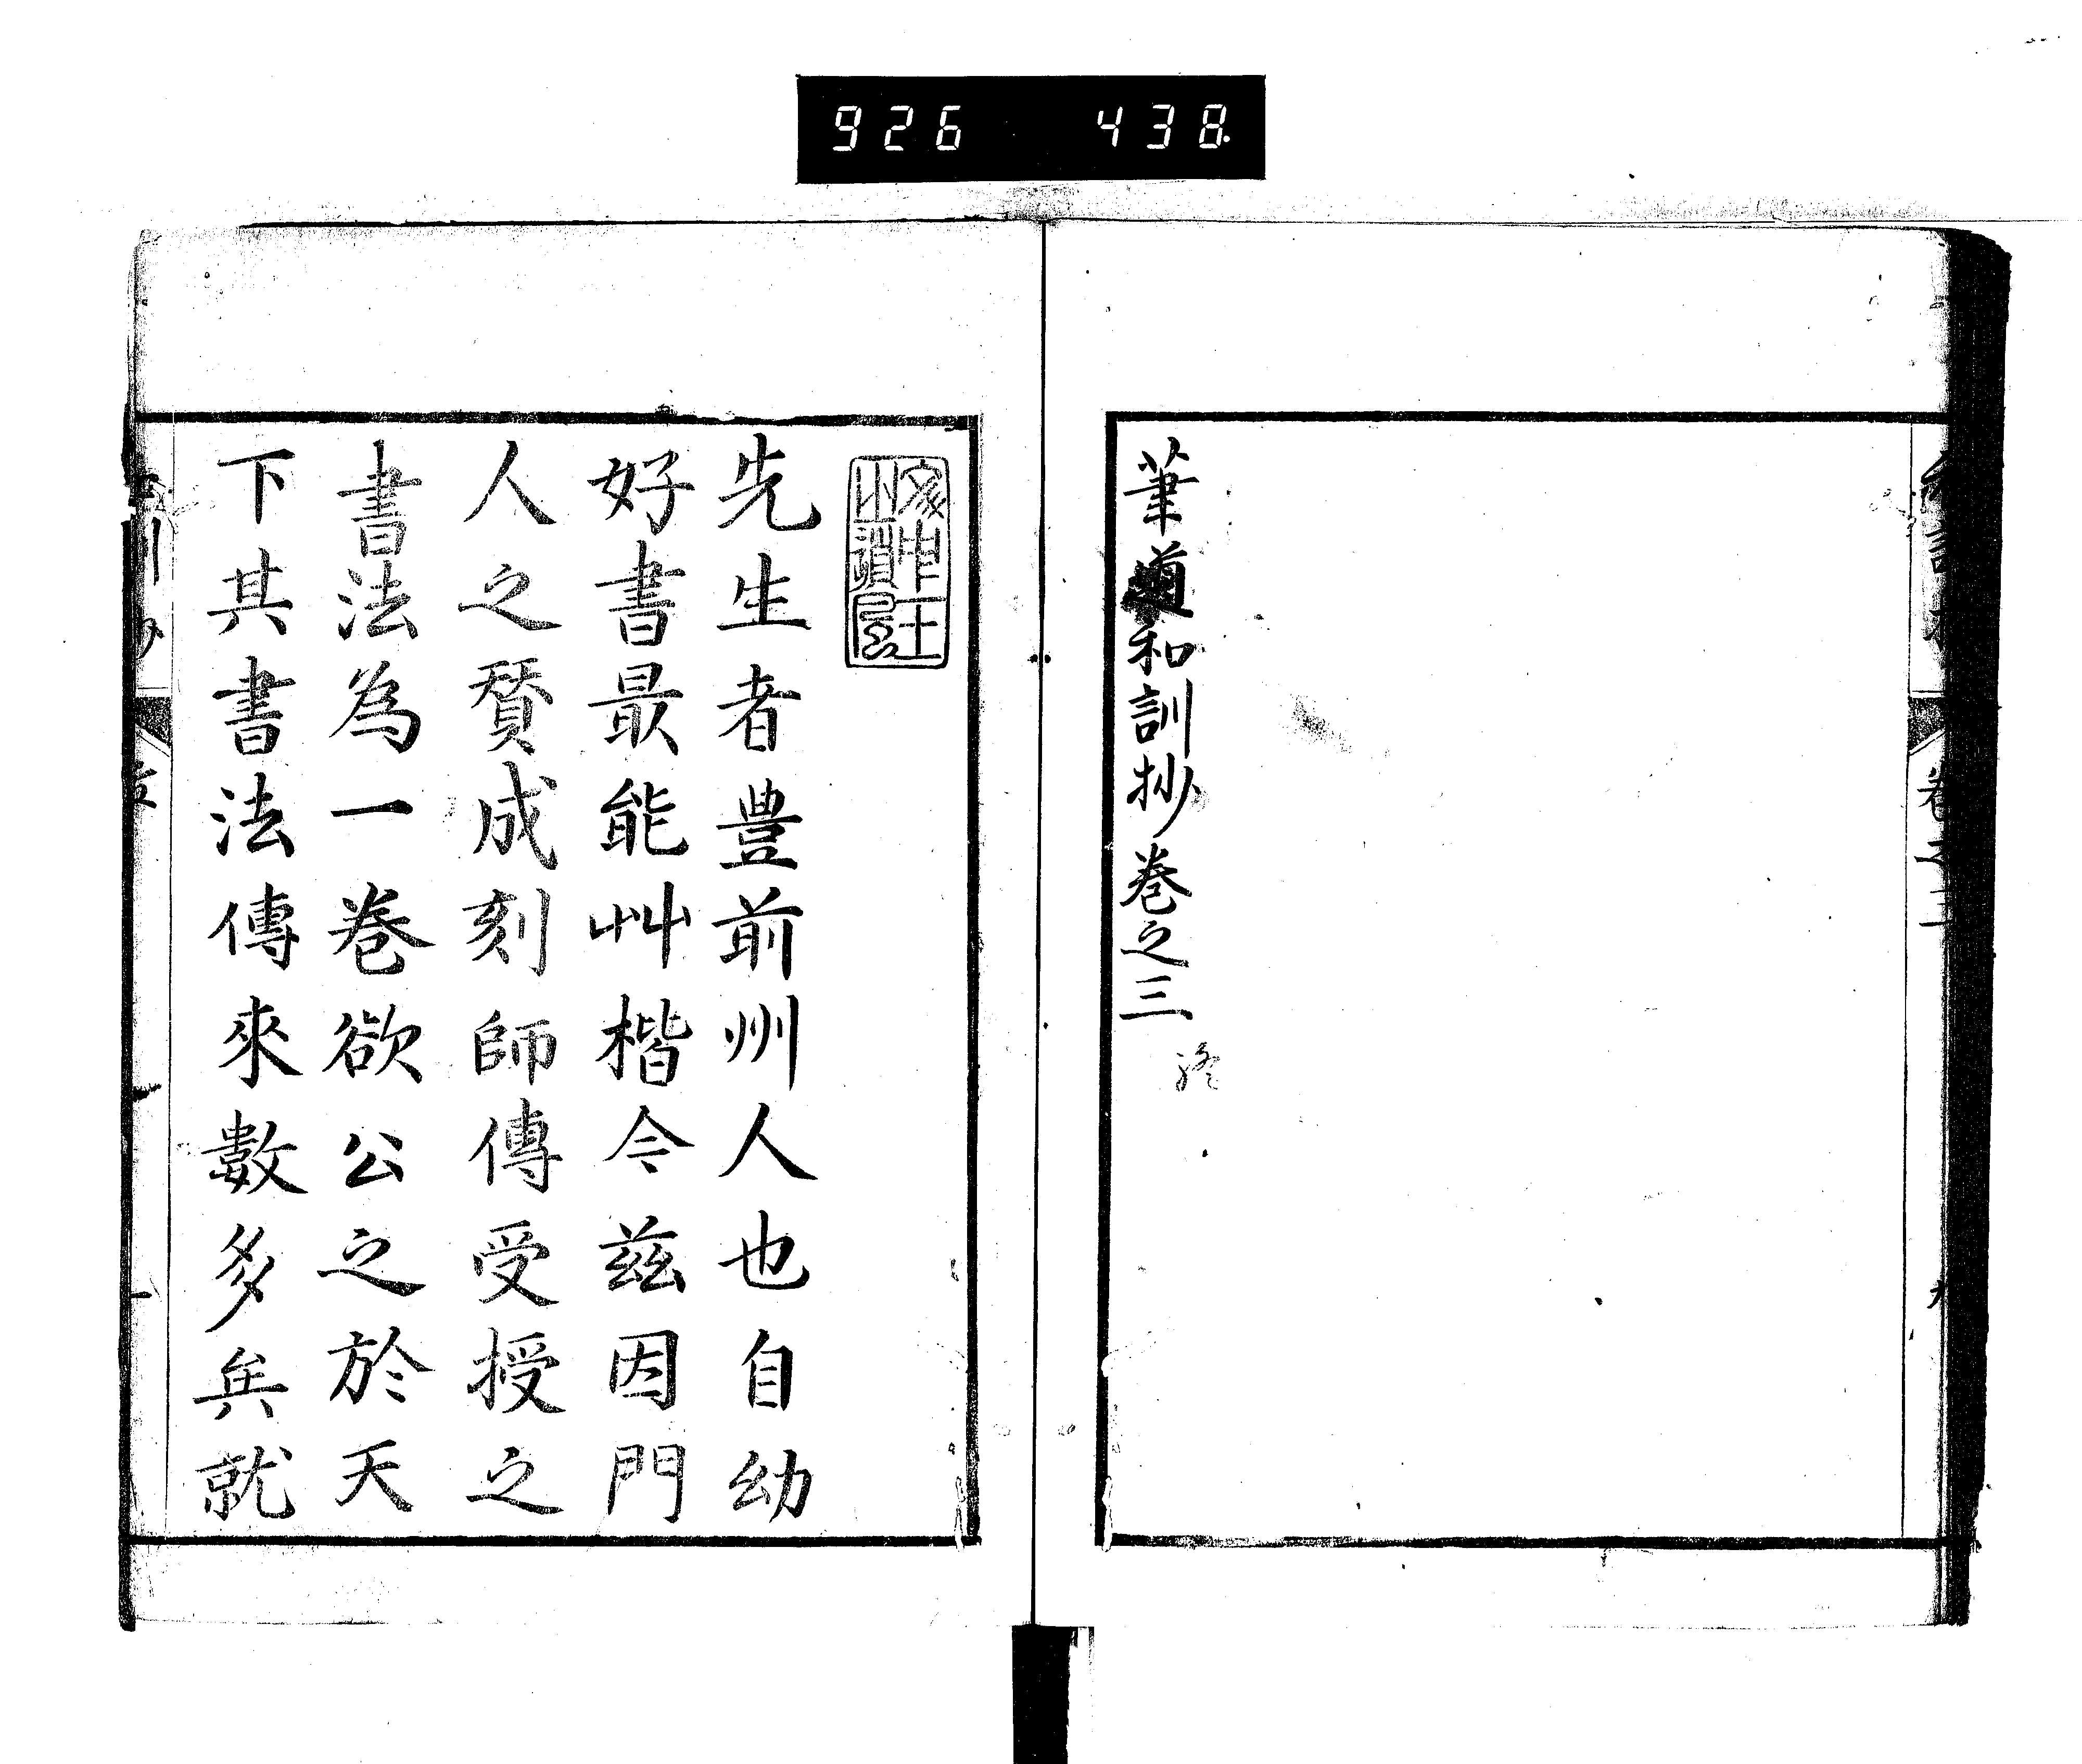 926 438
筆道和訓抄巻之三
終
先生者豊前州人也自幼
好書最能艸楷今茲因門
人之賛成刻師傳受授之
書法為一巻欲公之於天
下其書法傳來數多矣就